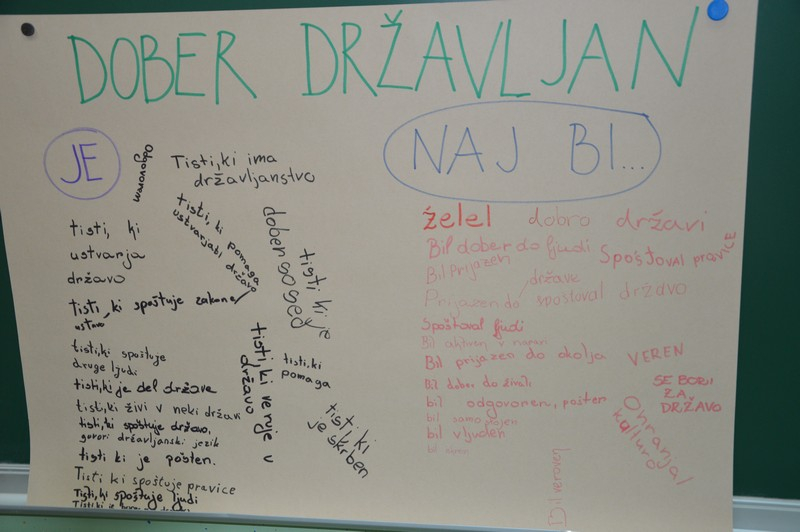 DOBER DRŽAVLJAN
JE
Odgovoren
Tisti, ki ima
državljanstvo
tisti, ki pomaga
ustvarjati državo
dober sosed
tisti ki je
tisti, ki
ustvarja
državo
tisti, ki spoštuje zakone,
ustavo
tisti, ki spoštuje
druge ljudi
tisti, ki je del države
tisti, ki živi v neki državi
tisti, ki spoštuje državo,
govori državljanski jezik
tisti ki je pošten.
Tisti ki spoštuje pravice
Tisti, ki spoštuje ljudi
Tisti ki je
tisti ki veruje v
državo
tisti, ki
pomaga
tisti, ki
je skrben
NAJ BI...
želel dobro državi
Bil dober do ljudi
Bil prijazen
Spoštoval pravice
Prijazen do države
spoštoval državo
Spoštoval ljudi
Bil aktiven v
Bil prijazen do okolja
VEREN
Bil dober do živali
SE BORIL
ZA
DRŽAVO
bil odgovoren, pošten
bil samo
bil vljuden
bil
Ohranjal
kulturo
Bil veren